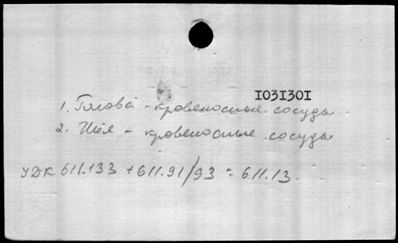 1031301
1. Голова - кровеносные сосуды.
2. Шея - кровеносные сосуды
УДК 611.133 + 611.91/93 = 611.13.